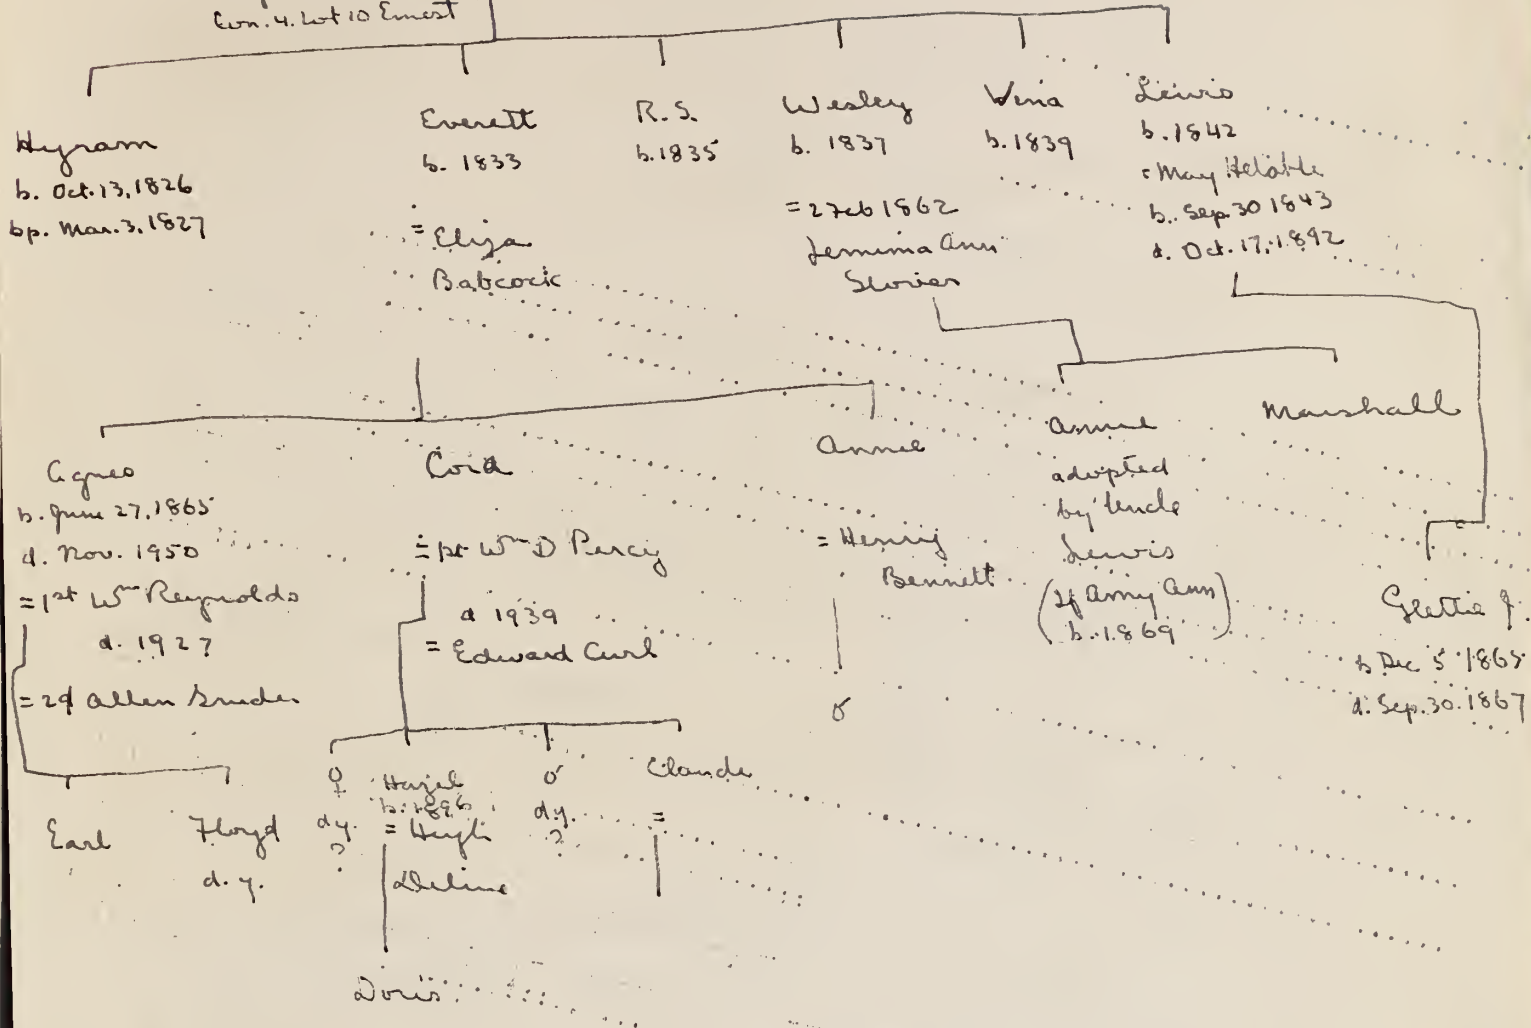 Con. 4. Lot 10 Ernest
Hyram
b. Oct. 13, 1826
bp. Mar. 3, 1827
Everett
b. 1833
= Eliza
Babcock
R. S.
b. 1835
Wesley
b. 1837
= 2 Feb 1862
Jemima Ann
Stories
Vina
b. 1839
Lewis
b. 1842
= May
b. Sep. 30 1843
d. Oct. 17, 1892
Agnes
b. June 27, 1865
d. Nov. 1950
= 1st Wm Reynolds
d. 1927
= 2d Allen Snider
Cora
= 1st Wm D Percy
d 1939
= Edward Curl
Annie
= Henry
Bennett
♂
Annie
adopted
by Uncle
Lewis
(If Amy Ann
b. 1869)
Marshall
Glettie J.
b Dec 5 1865
d. Sep. 30. 1867
Earl
Floyd
d. y.
♀
dy.
?
Hazel
b. 1896
= Hugh
Deline
♂
dy.
?
Claude
=
Doris